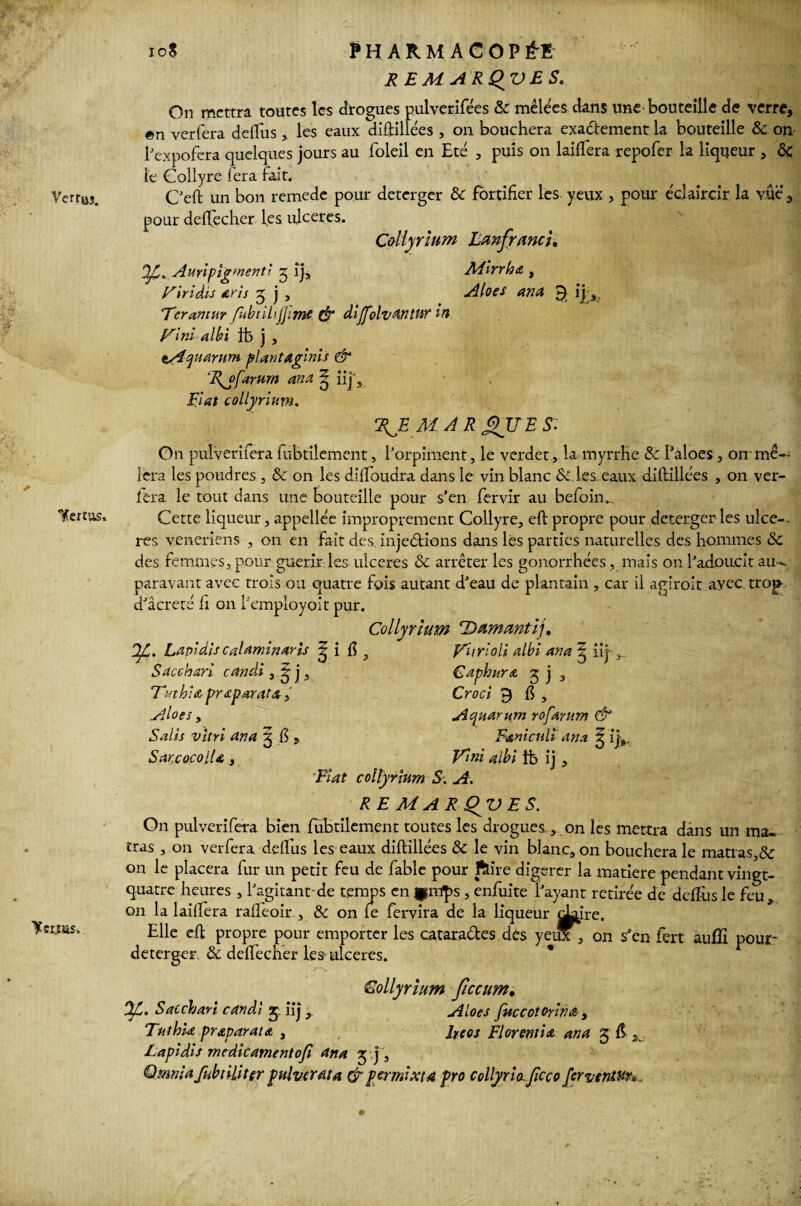 108 PHARMACOPÉE
REMARQVES.
On mettra toutes les drogues pulverisées & mêlées dans une bouteille de verre,
en versera dessus, les eaux distillées, on bouchera exactement la bouteille & on
l'exposera quelques jours au soleil en Eté, puis on laissera reposer la liqueur, &
le Collyre sera fait.
Vertus.
C'est un bon remede pour deterger & fortifier les yeux, pour éclaircir la vûë,
pour dessecher les ulceres.
Collyrium Lanfranci.
♃. Auripigmenti ʒ ij,
Viridis æris ʒ j,
Mirrhæ,
Aloes ana ℈ ij,
Terantur subtilissime & dissolvantur in
Vini albi ℔ j,
Aquarum plantaginis &
Rosarum ana ℥ iij,
Fiat collyrium.
REMARQUES.
On pulverisera subtilement, l'orpiment, le verdet, la myrrhe & l'aloes, on mê-
lera les poudres, & on les dissoudra dans le vin blanc & les eaux distillées, on ver-
sera le tout dans une bouteille pour s'en servir au besoin.
Vertus.
Cette liqueur, appellée improprement Collyre, est propre pour deterger les ulce-
res veneriens, on en fait des injections dans les parties naturelles des hommes &
des femmes, pour guerir les ulceres & arrêter les gonorrhées, mais on l'adoucit au-
paravant avec trois ou quatre fois autant d'eau de plantain, car il agiroit avec trop
d'âcreté si on l'employoit pur.
Collyrium Damantij.
♃. Lapidis calaminaris ℥ i ß,
Sacchari candi, ℥ j,
Tuthiæ præparatæ,
Aloes,
Salis vitri ana ℥ ß,
Sarcocollæ,
Vitrioli albi ana ℥ iij,
Caphuræ ʒ j,
Croci ℈ ß,
Aquarum rosarum &
Fæniculi ana ℥ ij,
Vini albi ℔ ij,
Fiat collyrium S. A.
REMARQVES.
On pulverisera bien subtilement toutes les drogues, on les mettra dans un ma-
tras, on versera dessus les eaux distillées & le vin blanc, on bouchera le matras, &
on le placera sur un petit feu de sable pour faire digerer la matiere pendant vingt-
quatre heures, l'agitant de temps en temps, ensuite l'ayant retirée de dessus le feu,
on la laissera rasseoir, & on se servira de la liqueur claire.
Vertus.
Elle est propre pour emporter les cataractes des yeux, on s'en sert aussi pour
deterger & dessecher les ulceres.
Collyrium siccum.
♃. Sacchari candi ʒ iij,
Tuthiæ præparatæ,
Lapidis medicamentosi ana ʒ j,
Aloes succotorinæ,
Ireos Florentiæ ana ʒ ß,
Omnia subtiliter pulverata & permixta pro collyrio sicco serventur.